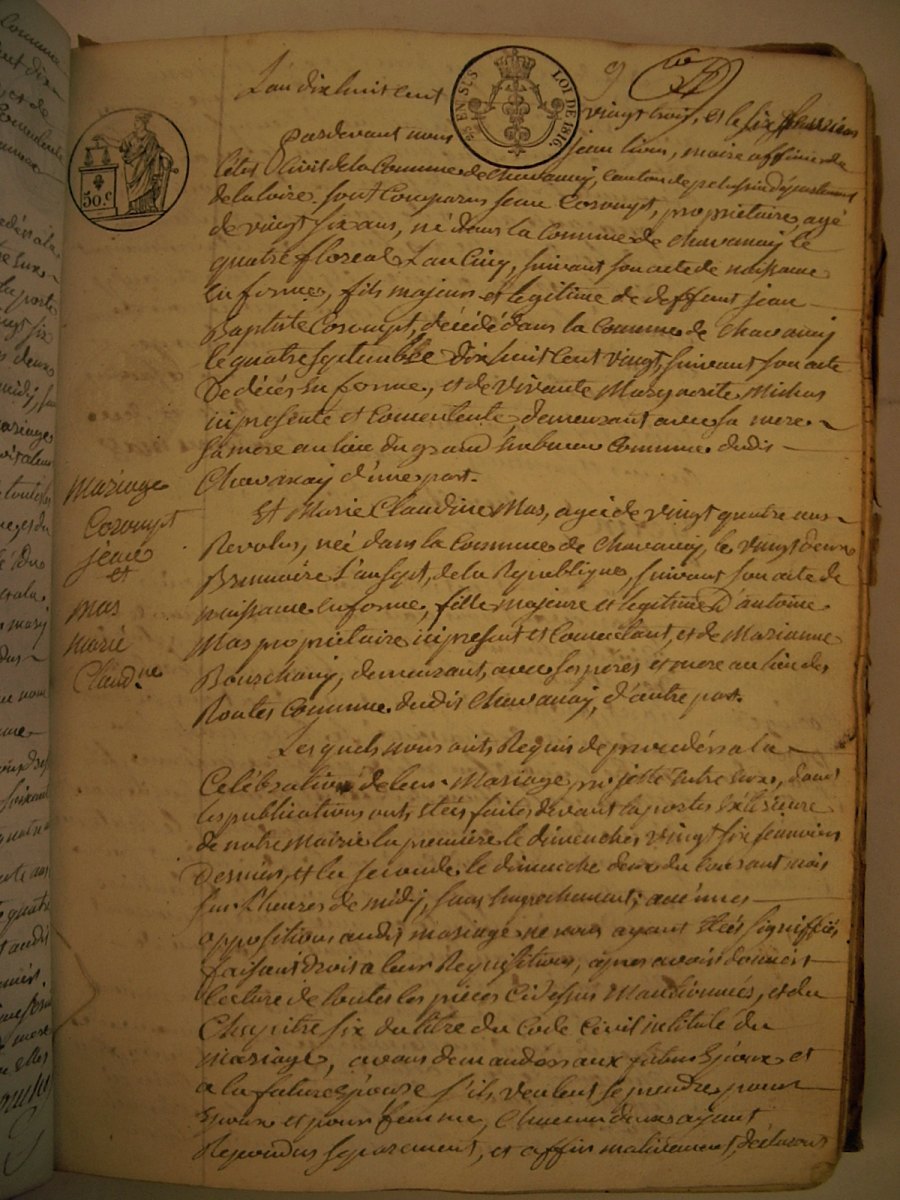 L'an dix huit cent
vingt trois, et le six fevrier
EN SUS LOI DE 1816.
50.c
9
Pardevant nous jean
maire officier de
L'etat Civil de la Commune de Chavanay, canton de pelussin departement
de la loire. sont Comparus jean Corompt, propriétaire, agé
de vingt six ans, né dans la Commune de Chavanay le
quatre floreal L'an Cinq, suivant son acte de naissance
En forme, fils majeur et legitime de deffunt jean
Baptiste Corompt, décédé dans la Commune de Chavanay
le quatre septembre dix huit cent vingt, suivant son acte
De décès En forme, et de vivante Marguerite Michas
ici presente et Consentente demeurant avec sa mere
sa mere au lieu du grand Commune dudit
Chavanay d'une part.
Mariage
Corompt
jean
et
mas
marie
Claudne
Et Marie Claudine Mas, agée de vingt quatre ans
Revolus, née dans la Commune de Chavanay, le vingt deux
Brumaire L'an sept, de la Republique, suivant son acte de
naissance En forme, fille majeure et legitime D'antoine
Mas proprietaire ici present et Consentant, et de Marianne
Bourchany, demeurant, avec ses perès et mere au lieu des
Routes Commune dudit Chavanay, d'autre part.
Les quels nous onts Requis de proceder a la
Celebration de leur Mariage projetté Entre Eux, dont
les publications onts Etées faites devant la portes Extérieure
de notre Mairie la première le dimanche vingt six janvier
Dernier, et la seconde le dimanche deux du Courant mois
sur L'heures de midy, sans Empechement; aucunes
oppositions audit mariage ne nous ayant Etées signiffiés
faisant droit a leur Requisitions, apres avoir donner
lecture de toutes les pièces Cidessus Mantionnés, et du
Chapitre six du titre du Code Civil intitulé du
mariage, avons demander aux futur Epoux et
a la future Epouse s'ils veulent se prendre pour
Epoux et pour femme, Chacun d'eux ayant
Repondus separement, et affirmativement, declarons